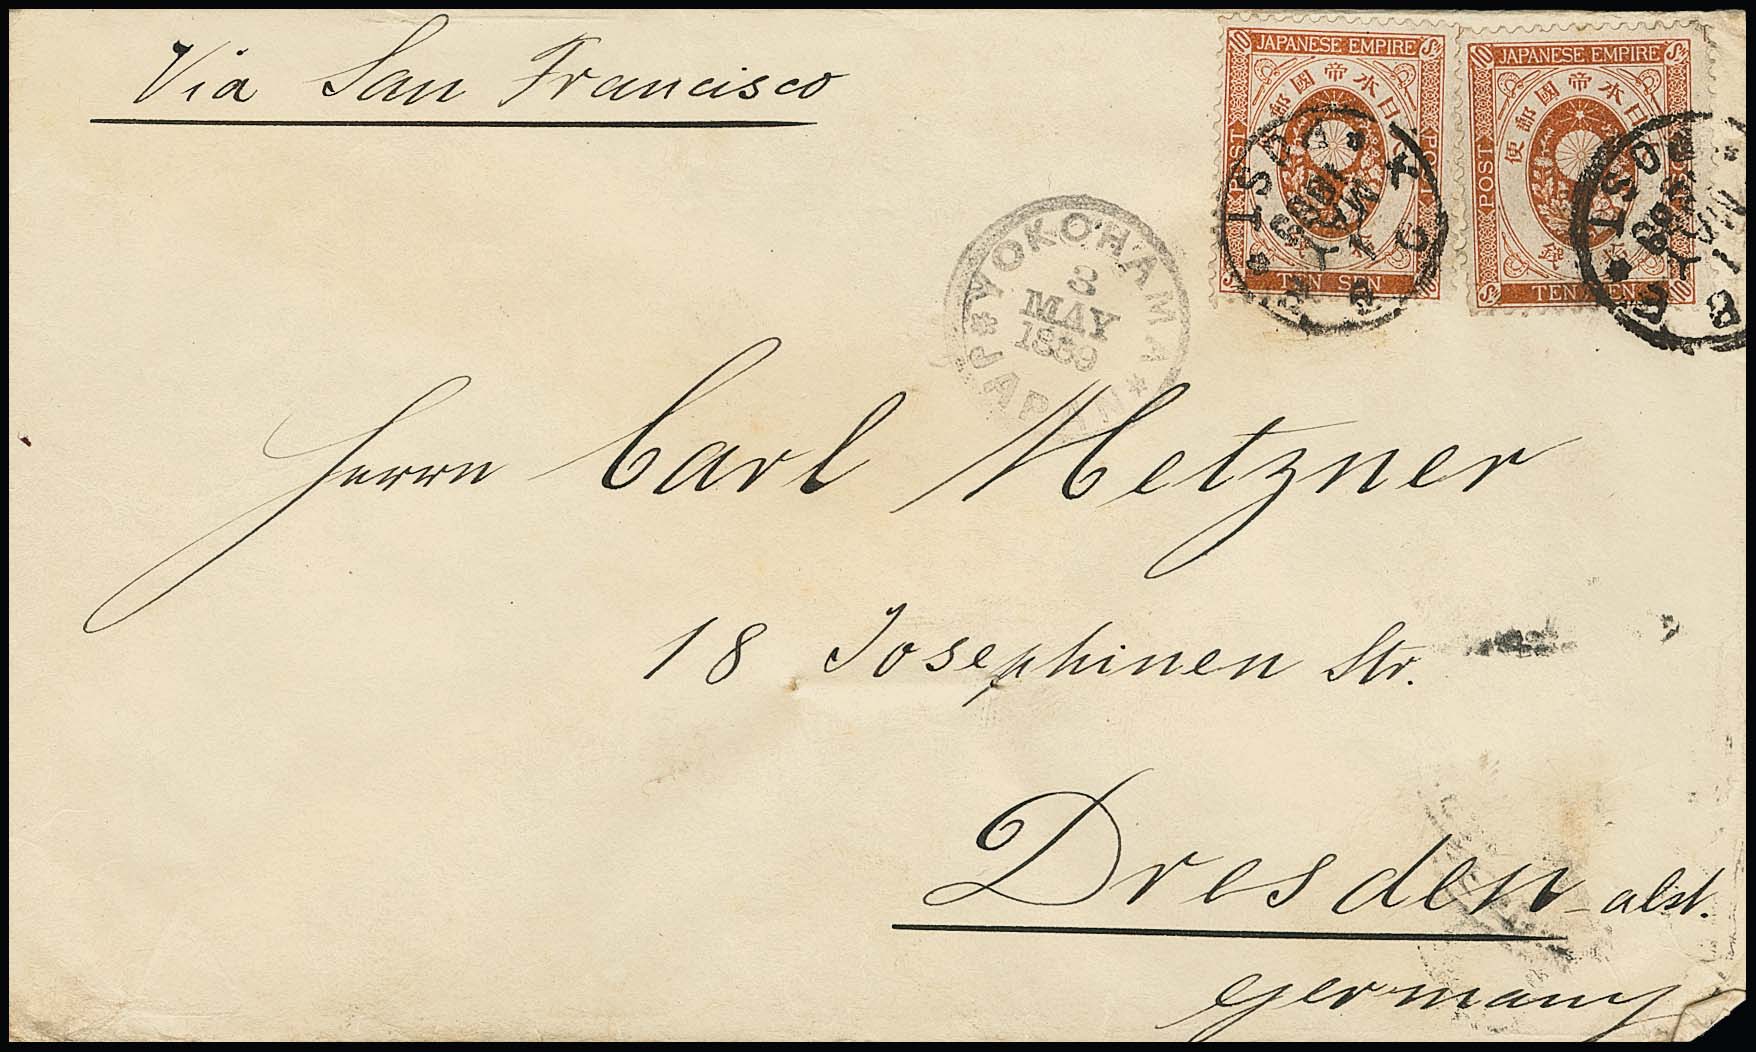 Via San Francisco
10 JAPANESE EMPIRE Sn
日本帝國郵便
POST
TEN SEN
10 JAPANESE EMPIRE Sn
日本帝國郵便
POST
TEN SEN
YOKOHAMA
3
MAY
1889
JAPAN
Herrn Carl Metzner
18 Josephinen Str.
Dresden - alst.
Germany